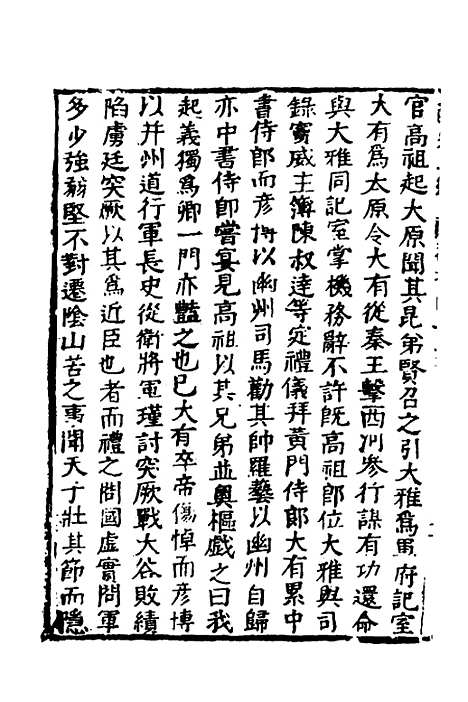 官高祖起大原聞其昆弟賢召之引大雅爲軍府記室
大有爲太原令大有從秦王擊西河參行謀有功還命
與大雅同記室掌機務辭不許既高祖郎位大雅與司
錄竇威主簿陳叔達等定禮儀拜黃門侍郎大有累中
書侍郎而彦博以幽州司馬勸其帥羅藝以幽州自歸
亦中書侍郎嘗宴見高祖以其兄弟並輿樞戲之曰我
起義獨爲卿一門亦豔之也已大有卒帝傷悼而彦博
以并州道行軍長史從衛將軍瑾討突厥戰大谷敗績
陷虜廷突厥以其爲近臣也者而禮之問國虛實問軍
多少強弱堅不對遷陰山苦之東聞天子壯其節而隱